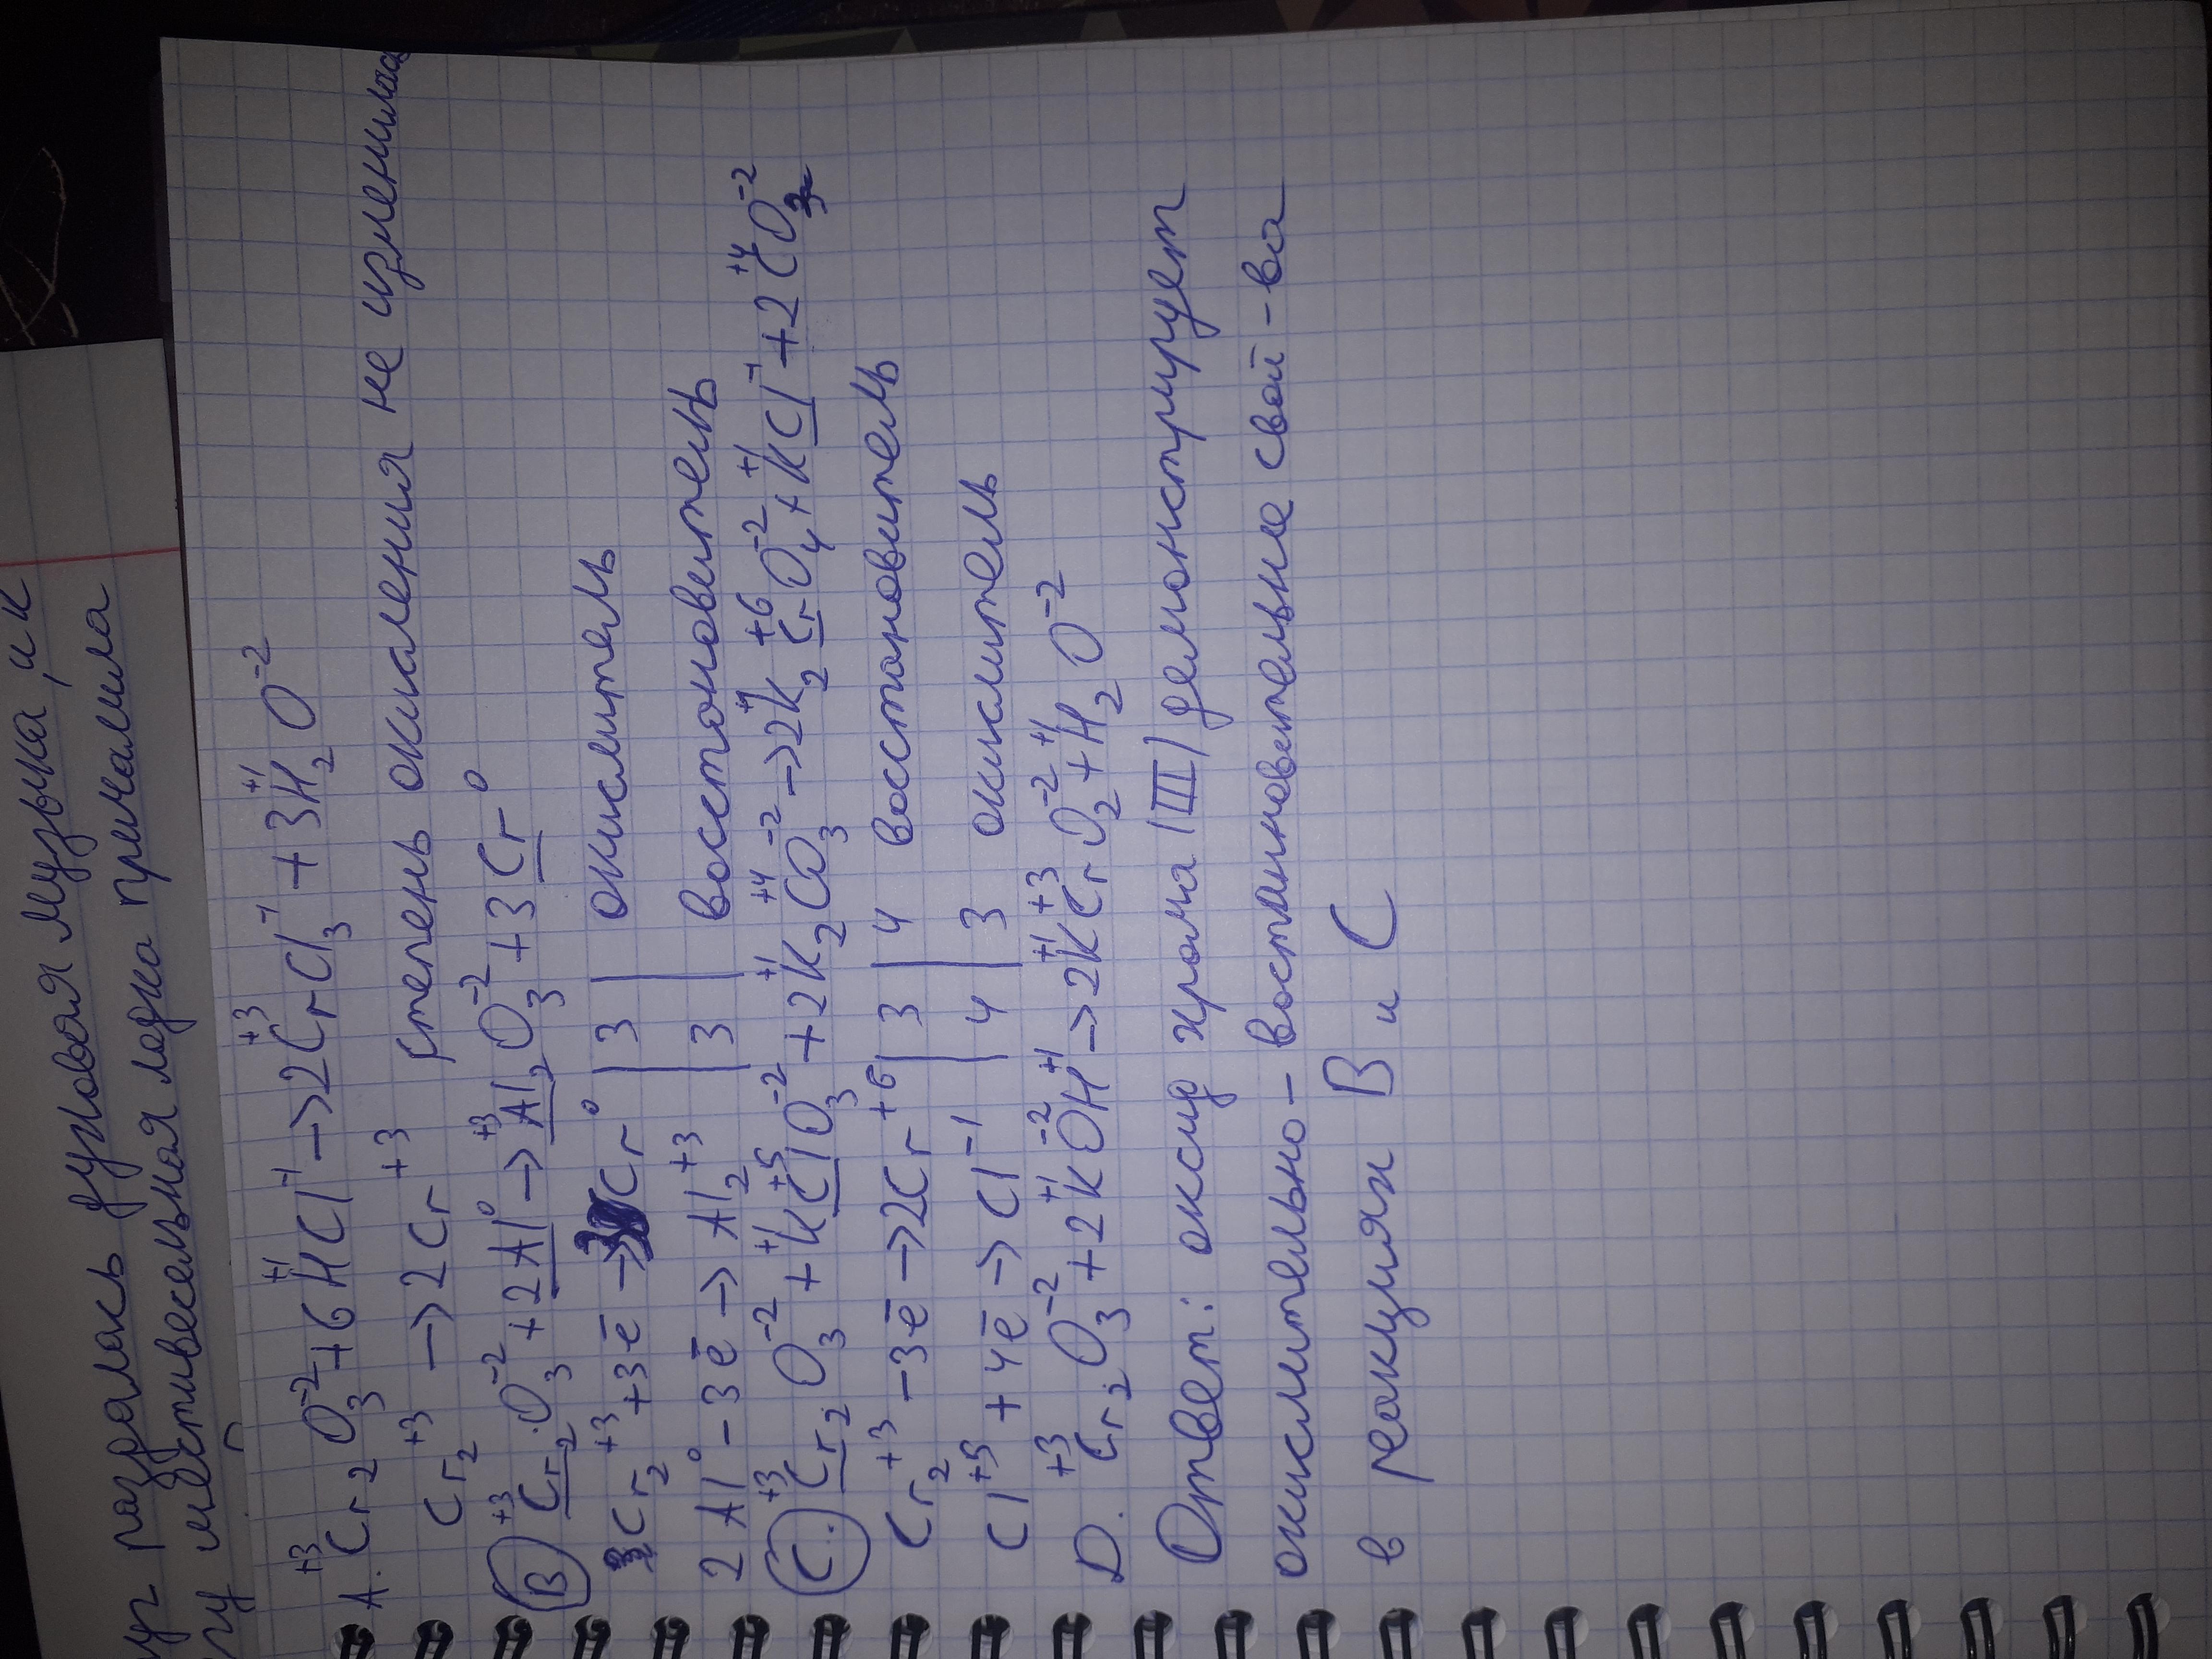 раздалась духовая музыка, и к
местивесельная лодка причалила
A. Cr₂⁺³O₃⁻² + 6H⁺¹Cl⁻¹ → 2Cr⁺³Cl₃⁻¹ + 3H₂⁺¹O⁻²
Cr₂⁺³ → 2Cr⁺³ степень окисления не изменилась
B) Cr₂⁺³O₃⁻² + 2Al⁰ → Al₂⁺³O₃⁻² + 3Cr⁰
Cr₂⁺³ + 3ē → Cr⁰ | 3 | окислитель
2Al⁰ - 3ē → Al₂⁺³ | 3 | востоновитель
C.) Cr₂⁺³O₃⁻² + K⁺¹Cl⁺⁵O₃⁻² + 2K₂⁺¹C⁺⁴O₃⁻² → 2K₂⁺¹Cr⁺⁶O₄⁻² + K⁺¹Cl⁻¹ + 2C⁺⁴O₂⁻²
Cr₂⁺³ - 3ē → 2Cr⁺⁶ | 3 | 4 восстоновитель
Cl⁺⁵ + 4ē → Cl⁻¹ | 4 | 3 окислитель
D. Cr₂⁺³O₃⁻² + 2K⁺¹O⁻²H⁺¹ → 2K⁺¹Cr⁺³O₂⁻² + H₂⁺¹O⁻²
Ответ: оксид хрома (III) демонстрирует
окислительно-востанновительные свой-ва
в реакциях B и C